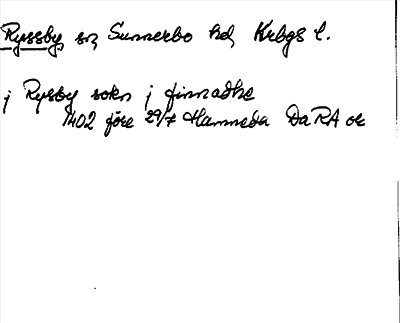 Ryssby, sn, Sunnerbo hd, Krbgs l.
j Rysby sokn j finnadhe
1402 före 29/7 Hamneda DaRA or